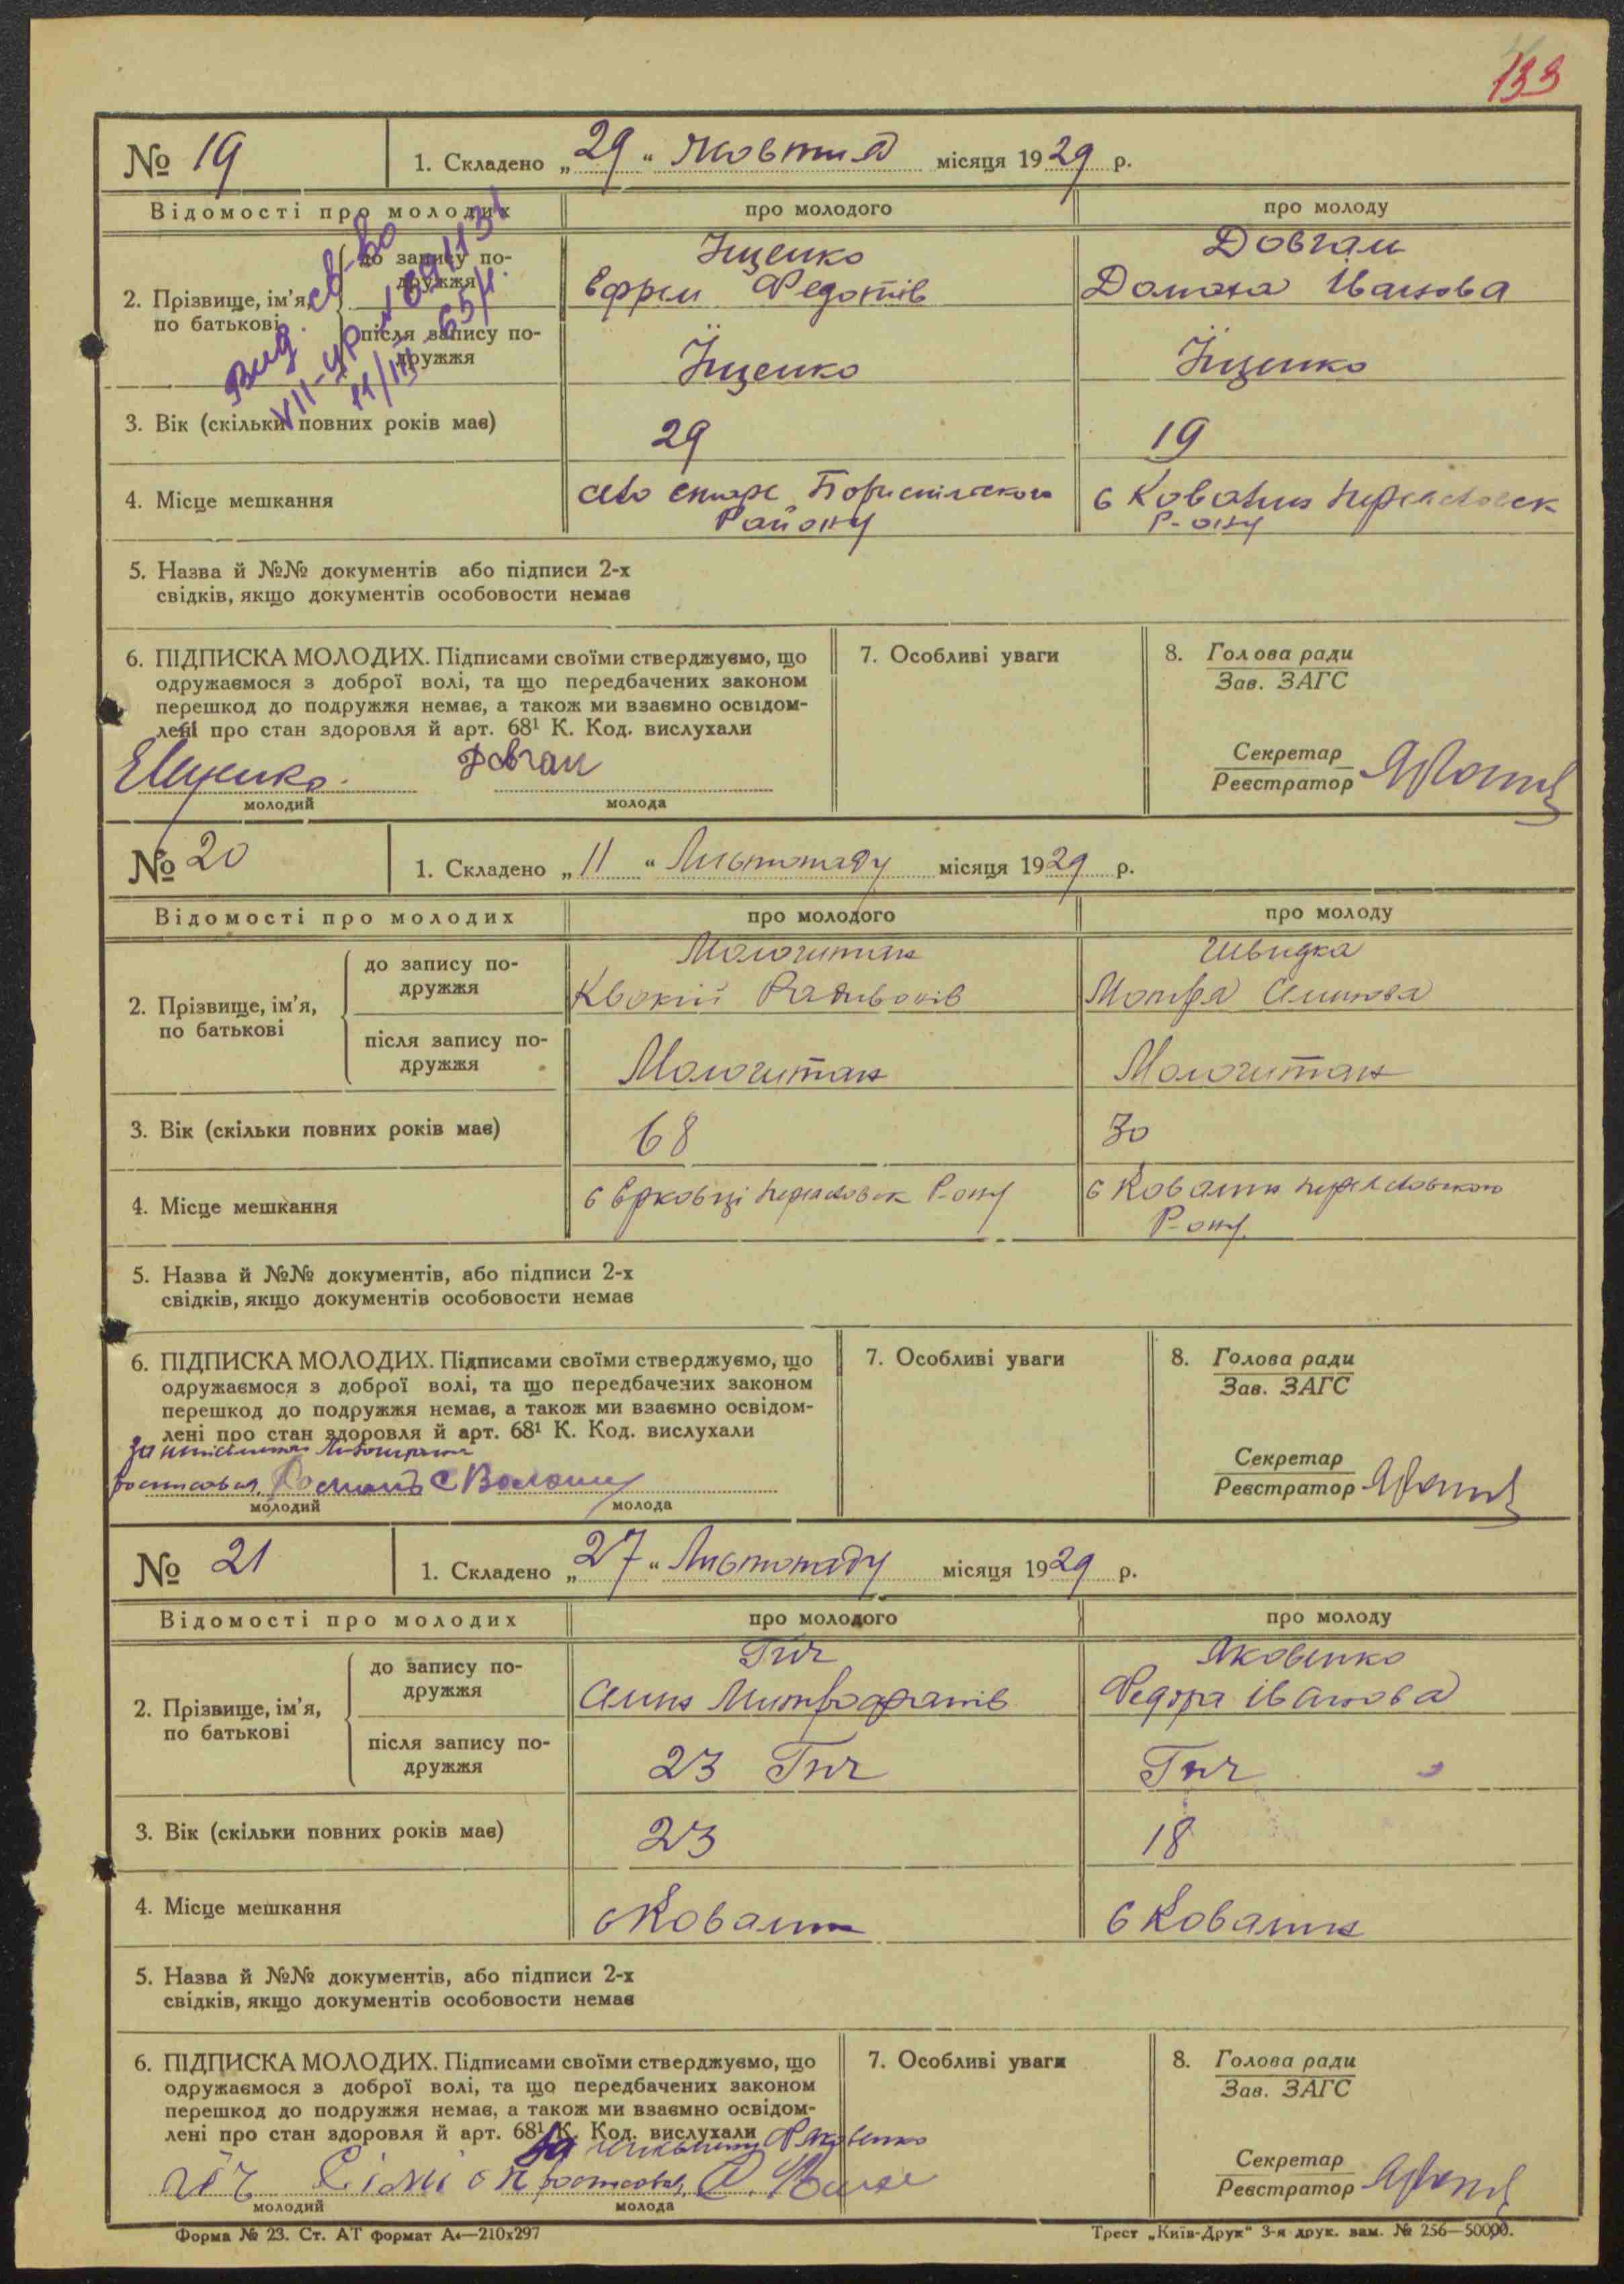 133
№ 19
1. Складено „29“ Жовтня місяця 1929 р.
Відомості про молодих
про молодого
про молоду
2. Прізвище, ім'я, по батькові
до запису подружжя
Іщенко
Ефрем Федотів
Довгаи
Домаха Іванова
після запису подружжя
Іщенко
Іщенко
3. Вік (скільки повних років має)
29
19
4. Місце мешкання
село Бориспільского
Району
с Ковалин
Р-ону
5. Назва й №№ документів або підписи 2-х
свідків, якщо документів особовости немає
6. ПІДПИСКА МОЛОДИХ. Підписами своїми стверджуємо, що
одружаємося з доброї волі, та що передбачених законом
перешкод до подружжя немає, а також ми взаємно освідом-
лені про стан здоровля й арт. 68¹ К. Код. вислухали
Е Іщенко
Довгаи
молодий
молода
7. Особливі уваги
8. Голова ради
Зав. ЗАГС
Секретар
Реєстратор
№ 20
1. Складено „11“ Листопаду місяця 1929 р.
Відомості про молодих
про молодого
про молоду
2. Прізвище, ім'я,
по батькові
до запису по-
дружжя
Швидка
Мотря
після запису по-
дружжя
3. Вік (скільки повних років має)
68
30
4. Місце мешкання
с Єрковці Р-ону
с Ковалин
Р-ону
5. Назва й №№ документів, або підписи 2-х
свідків, якщо документів особовости немає
6. ПІДПИСКА МОЛОДИХ. Підписами своїми стверджуємо, що
одружаємося з доброї волі, та що передбачених законом
перешкод до подружжя немає, а також ми взаємно освідом-
лені про стан здоровля й арт. 68¹ К. Код. вислухали
молодий
молода
7. Особливі уваги
8. Голова ради
Зав. ЗАГС
Секретар
Реєстратор
№ 21
1. Складено „27“ Листопаду місяця 1929 р.
Відомості про молодих
про молодого
про молоду
2. Прізвище, ім'я,
по батькові
до запису по-
дружжя
Гич
Яковенко
Федора Іванова
після запису по-
дружжя
23 Гич
Гич
3. Вік (скільки повних років має)
23
18
4. Місце мешкання
с Ковалин
с Ковалин
5. Назва й №№ документів, або підписи 2-х
свідків, якщо документів особовости немає
6. ПІДПИСКА МОЛОДИХ. Підписами своїми стверджуємо, що
одружаємося з доброї волі, та що передбачених законом
перешкод до подружжя немає, а також ми взаємно освідом-
лені про стан здоровля й арт. 68¹ К. Код. вислухали
молодий
молода
7. Особливі уваги
8. Голова ради
Зав. ЗАГС
Секретар
Реєстратор
Форма № 23. Ст. АТ формат А₄—210х297
Трест „Київ-Друк“ 3-я друк. зам. № 256—50000.